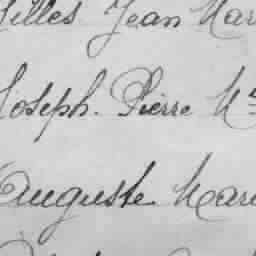 Gilles Jean Mar
Joseph. Pierre M
Auguste Mari